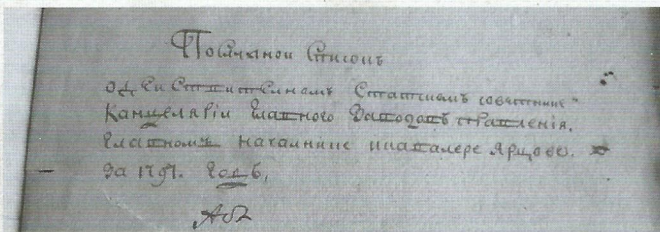 Послужной Списокъ
о действителномъ Статскомъ советнике
Канцелярiи Главного Заводовъ правленiя.
Главномъ началнике и кавалере Ярцове.
За 1797. Годъ.